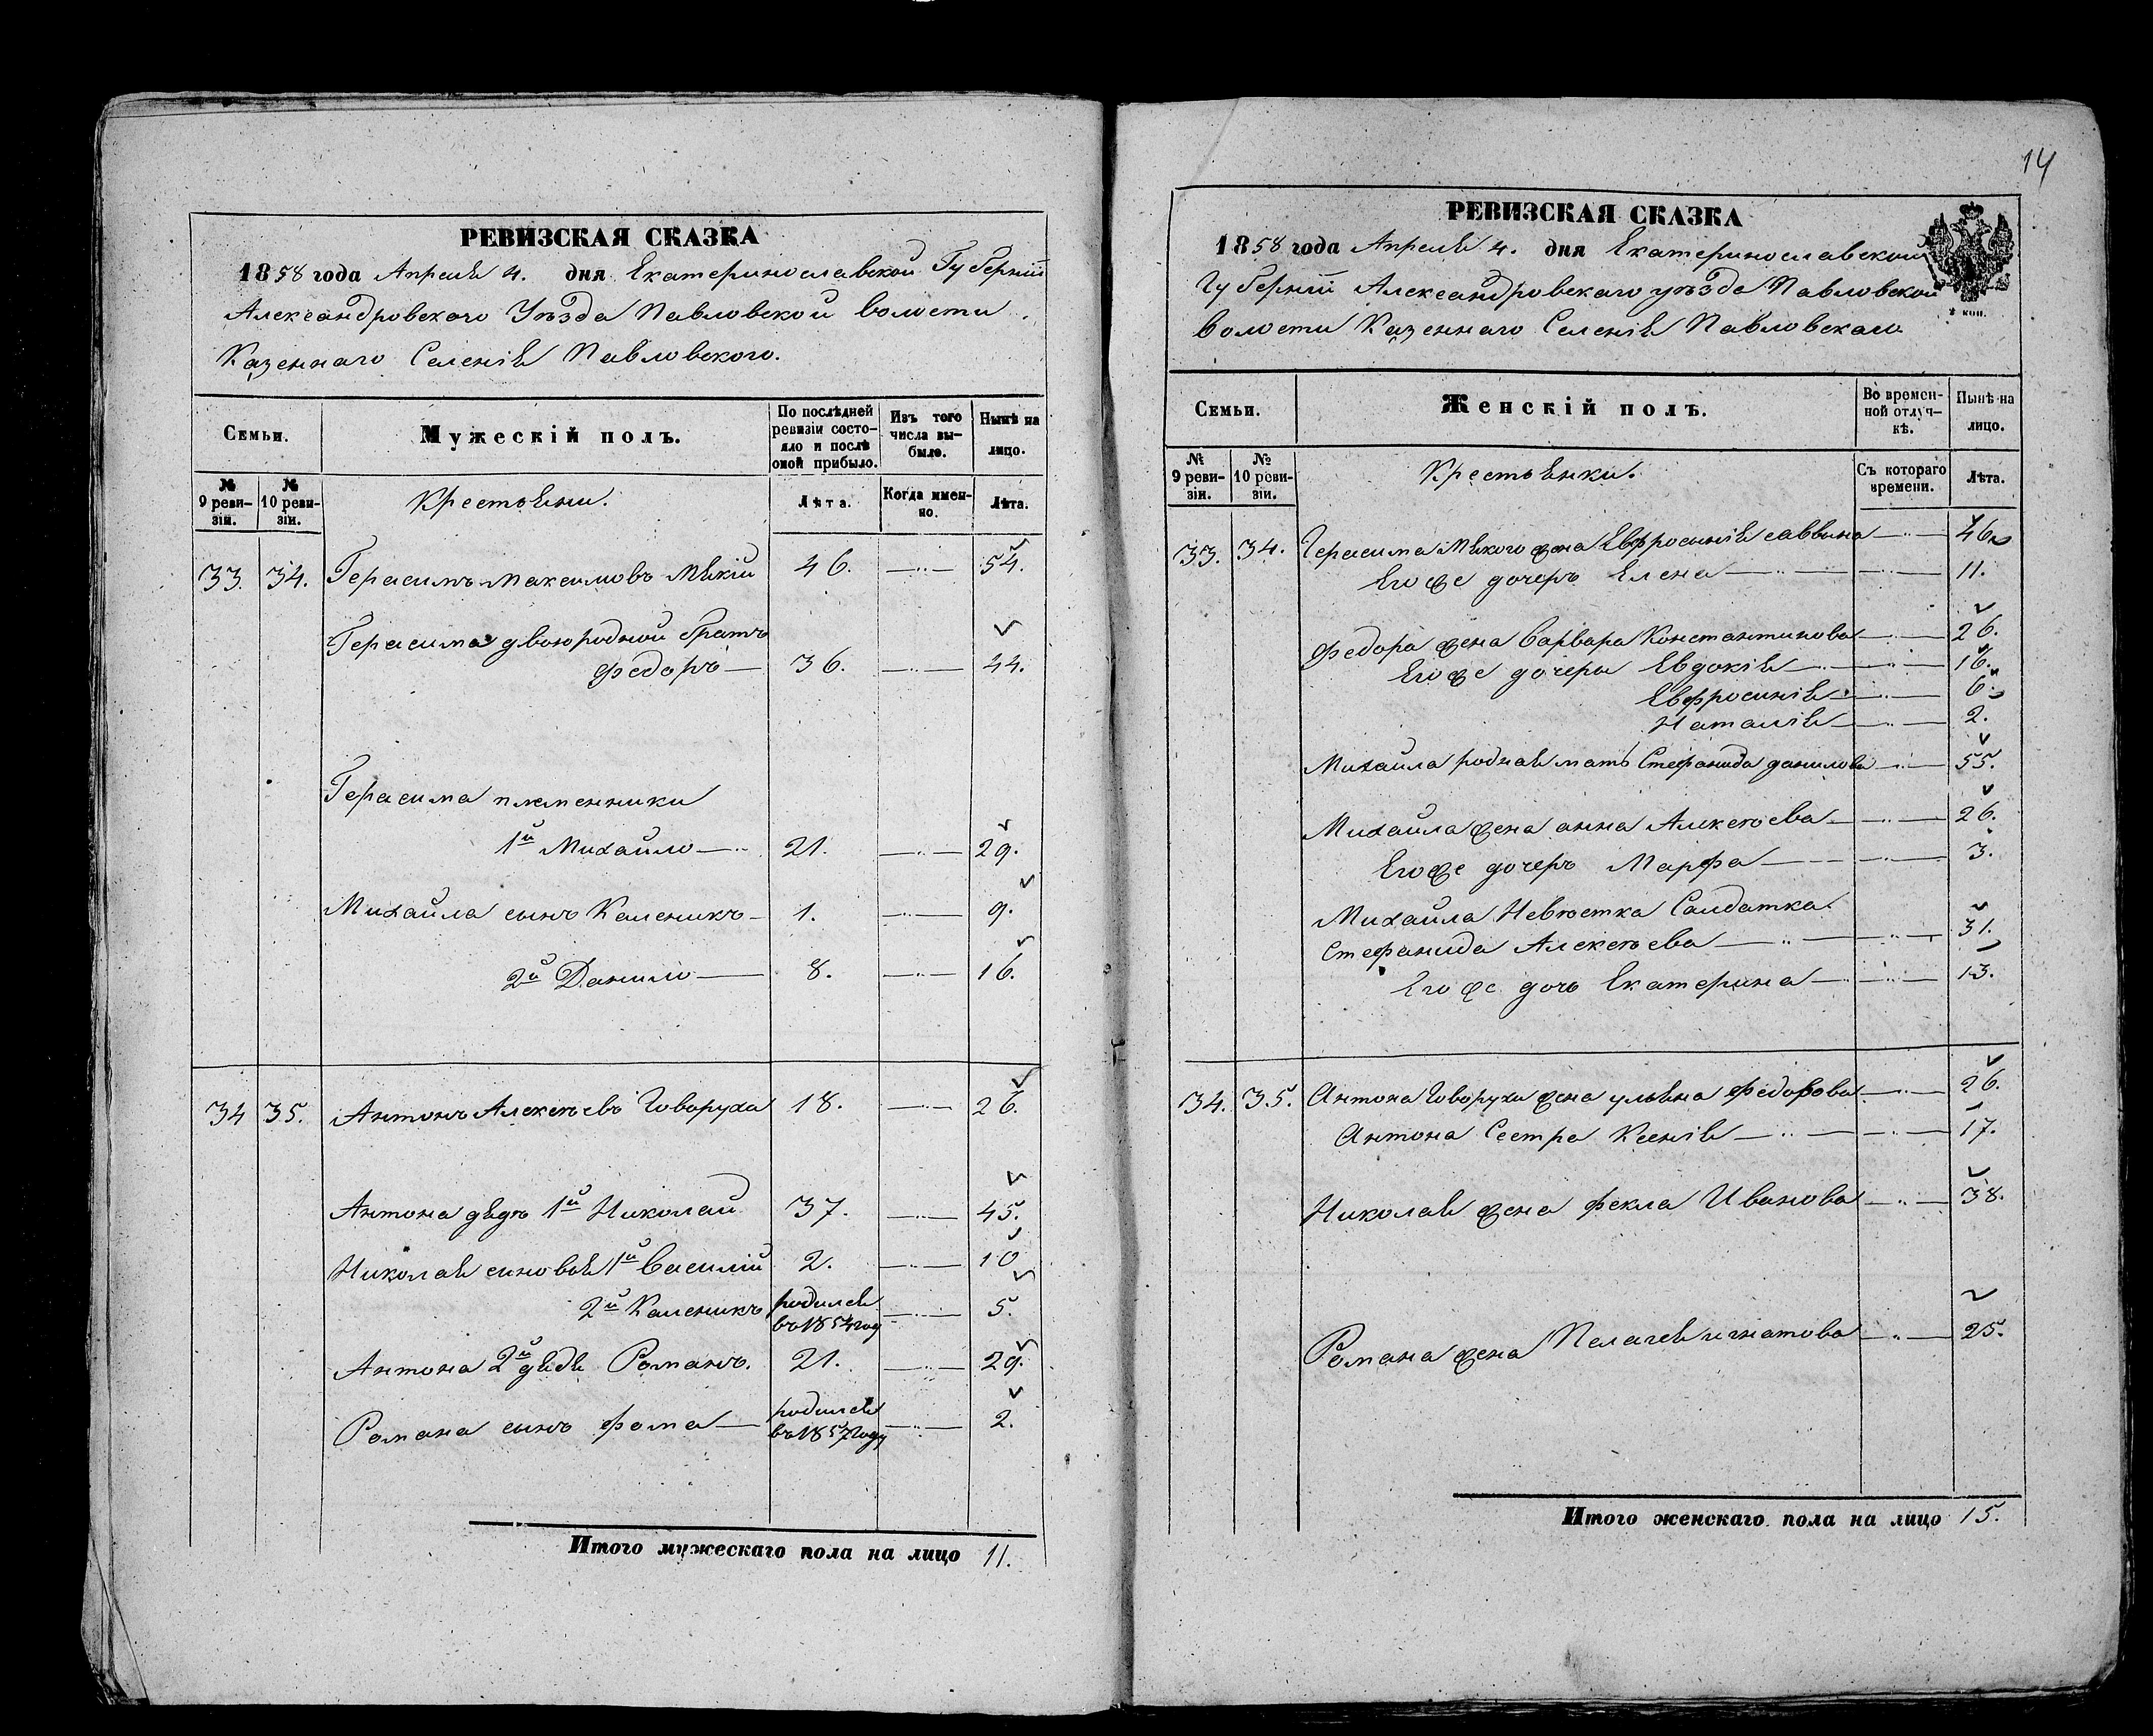 РЕВИЗСКАЯ СКАЗКА
1858 года Апреля 4. дня Екатеринославской Губернiи
Александровского Уѣзда Павловской волости
Казеннаго Селенiя Павловского.
Семьи.
Мужескiй полъ.
По послѣдней ревизiи состояло и послѣ оной прибыло.
Изъ того числа выбыло.
Нынѣ на лицо.
№ 9 ревизiи.
№ 10 ревизiи.
Крестьяни.
Лѣта.
Когда именно.
Лѣта.
33. 34. Герасимъ Максимовъ 46. —..— 54.
Герасима двоюродной братъ
федоръ — 36. —..— 44.
Герасима племенники
1й Михайло —.. 21. —..— 29.
Михайла сынъ Каленикъ — 1. —..— 9.
2й Данило — 8. —..— 16.
34 35. Антонъ Алексѣевъ Говоруха 18. —..— 26.
Антона дядя 1й Николай 37. —..— 45.
Николая сыновья 1й Василiй 2. —..— 10
2й Каленикъ родился въ 1854 год —..— 5.
Антона 2й дядя Романъ. 21. —..— 29.
Романа сынъ фома — родился въ 1857 году —..— 2.
Итого мужескаго пола на лицо 11.
14
РЕВИЗСКАЯ СКАЗКА
1858 года Апреля 4. дня Екатеринославской
Губернiи Александровскаго уѣзда Павловской
волости Казеннаго Селенiя Павловскаго
коп.
Семьи.
Женскiй полъ.
Во временной отлучкѣ.
Нынѣ на лицо.
№ 9 ревизiи.
№ 10 ревизiи.
Крестьянки.
Съ котораго времени.
Лѣта.
33. 34. Герасима жена Евфросинiя саввина —..— 46.
Его же дочеръ Елена —..— —..— 11.
федора жена Варвара Константинова —..— 26.
Его же дочеры Евдокiя —..— —..— 16.
Евфросинiя —..— 6.
Наталiя —..— 2.
Михайла родная мать Стефанида данилова —..— 55.
Михайла жена анна Алексѣева —..— 26.
Его же дочеръ Марфа — —..— 3.
Михайла Невѣстка Салдатка
Стефанида Алексѣева —..— —..— 31.
Его же дочь Екатерина —..— —..— 13.
34. 35. Антона Говорухи жена ульяна федорова —..— 26.
Антона Сестра Ксенiя —..— —..— 17.
Николая жена фекла Иванова —..— 38.
Романа жена Пелагея игнатова —..— 25.
Итого женскаго пола на лицо 15.